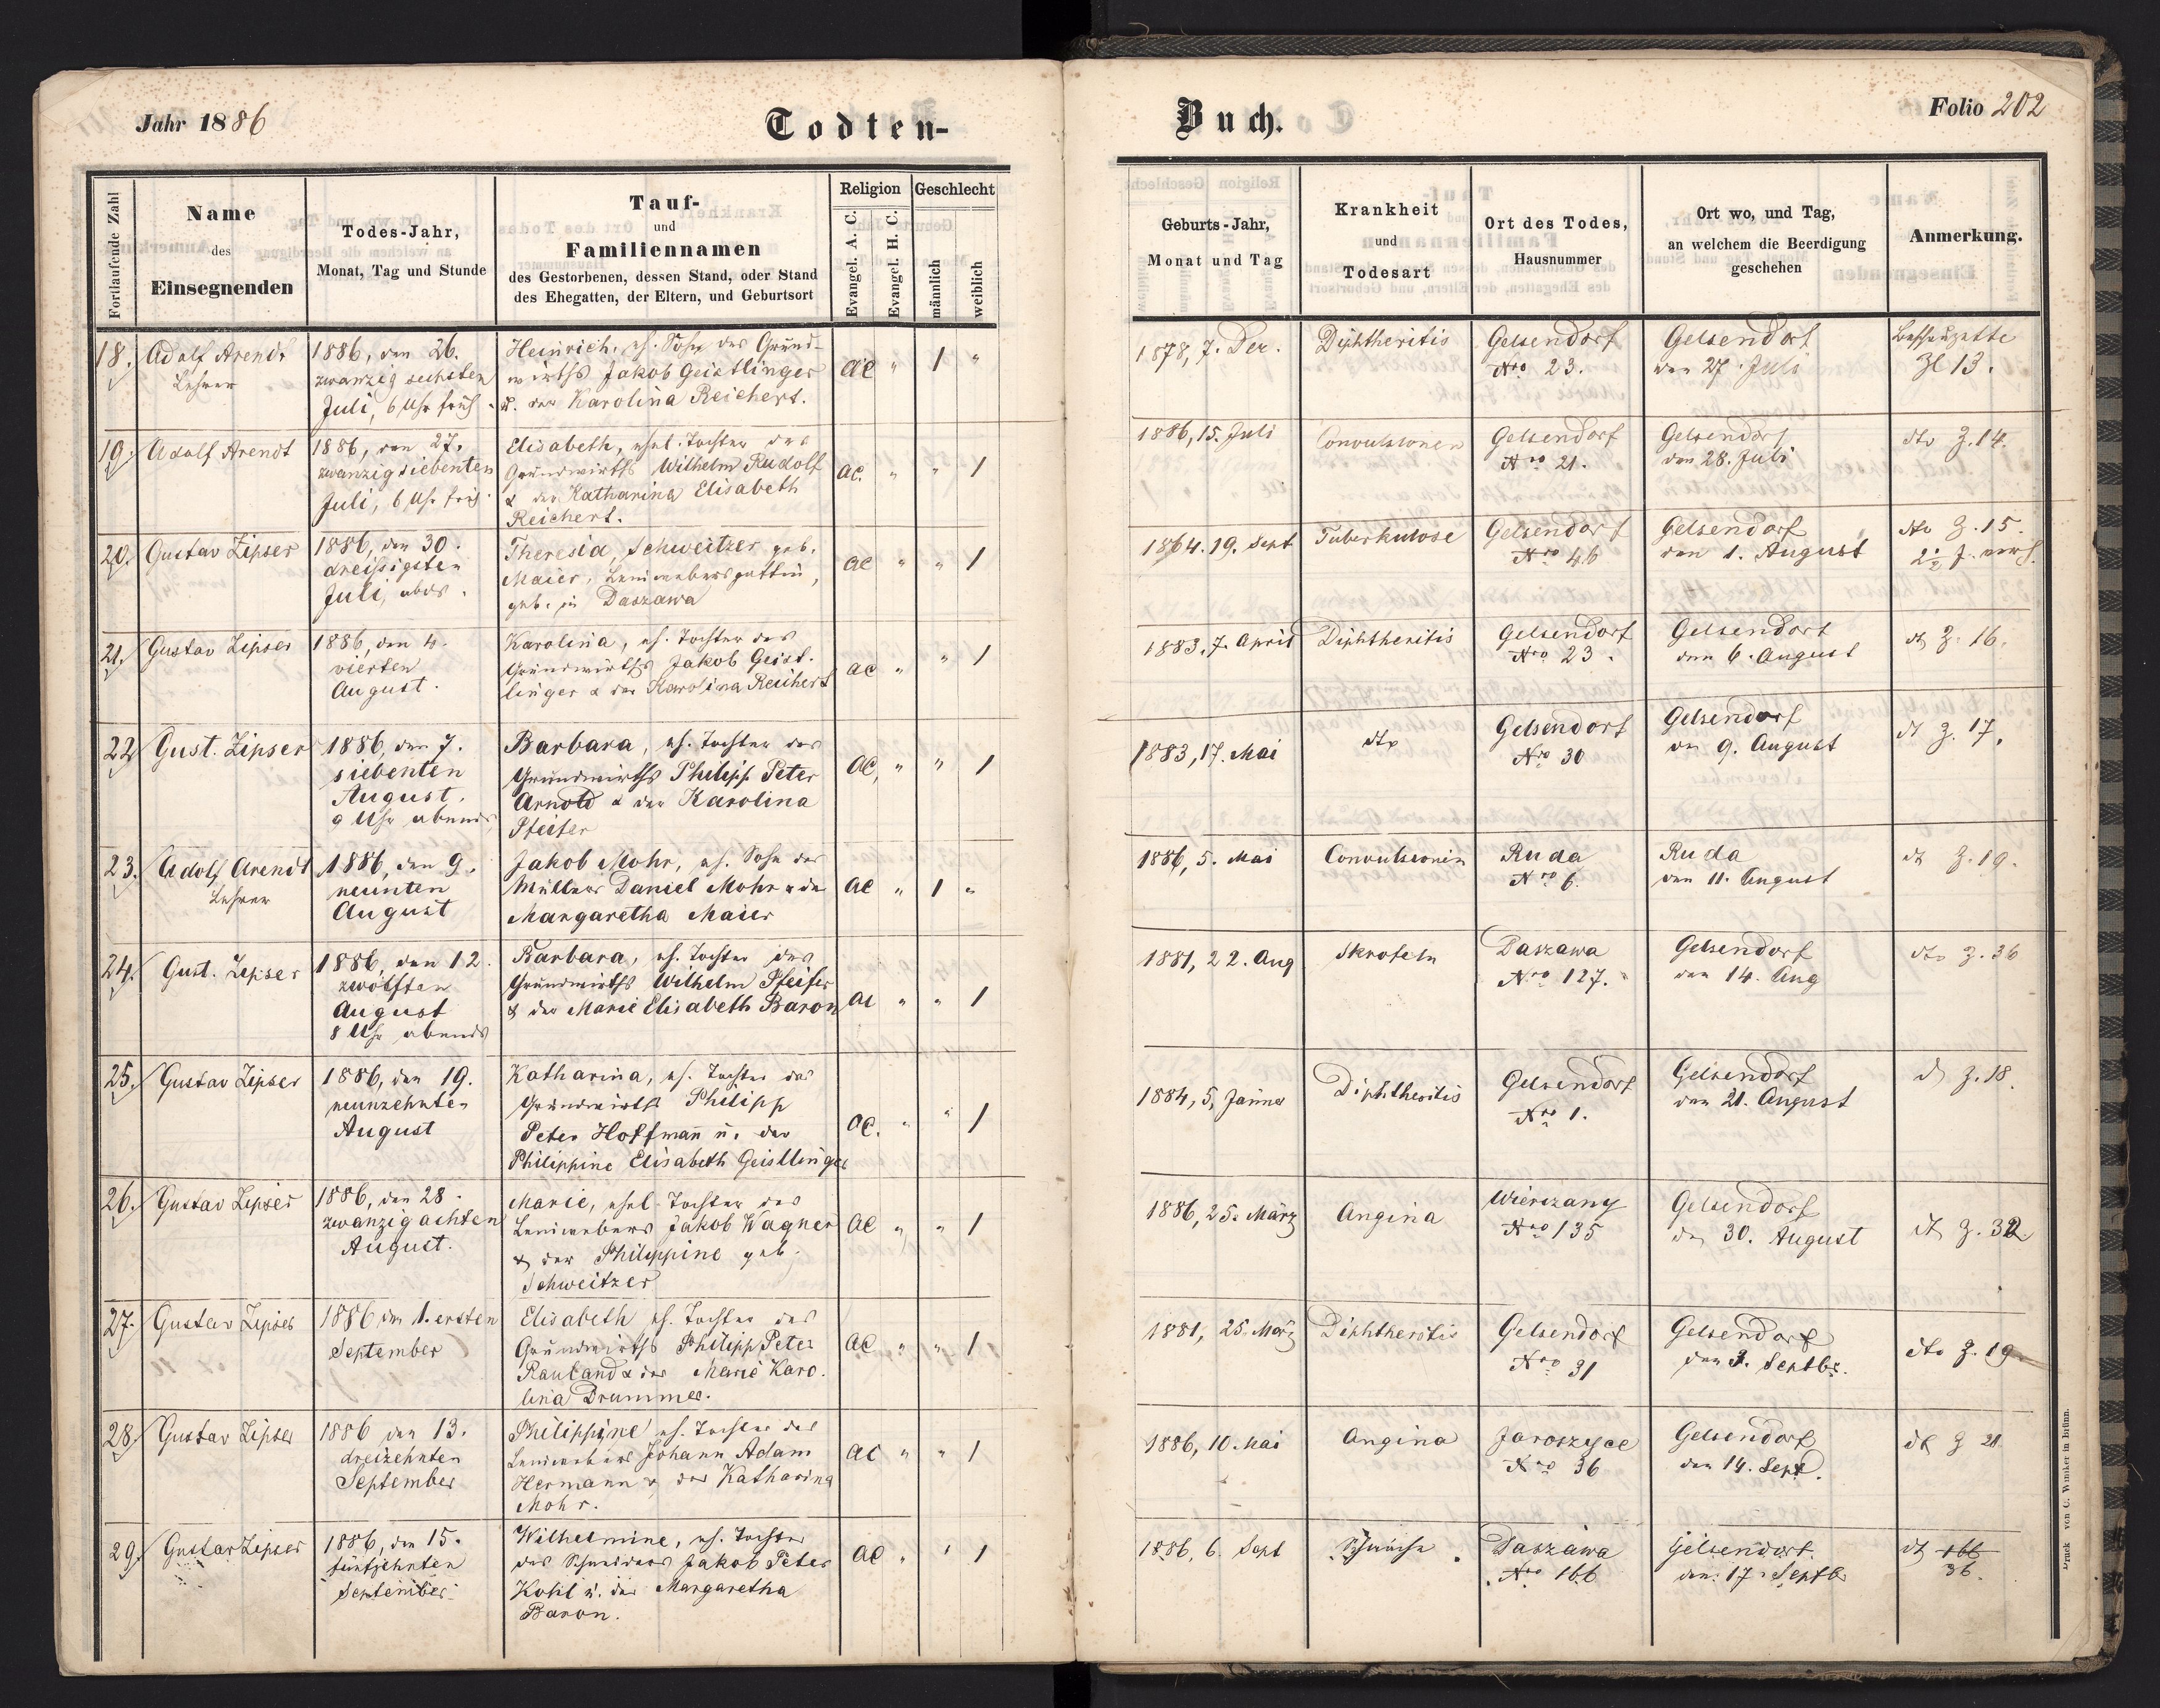 Jahr 1886
Todten-
Buch.
Folio 202
Fortlaufende Zahl
Name
des
Einsegnenden
Todes-Jahr,
Monat, Tag und Stunde
Tauf-
und
Familiennamen
des Gestorbenen, dessen Stand, oder Stand
des Ehegatten, der Eltern, und Geburtsort
Religion
Evangel. A. C.
Evangel. H. C.
Geschlecht
männlich
weiblich
Geburts-Jahr,
Monat und Tag
Krankheit
und
Todesart
Ort des Todes,
Hausnummer
Ort wo, und Tag,
an welchem die Beerdigung
geschehen
Anmerkung.
18.
Adolf Arendt
Lehrer
1886, den 26.
zwanzig sechsten
Juli, 6 Uhr früh
Heinrich, eh. Sohn des Grund-
wirths Jakob Geistlinger
u. der Karolina Reichert.
ac " 1 "
1878, 7. Dez.
Diphtheritis
Gelsendorf
Nro 23.
Gelsendorf
den 27. Juli
Zl 13.
19.
Adolf Arendt
1886, den 27.
zwanzig siebenten
Juli, 6 Uhr früh
Elisabeth, ehel. Tochter des
Grundwirths Wilhelm Rudolf
& der Katharina Elisabeth
Reichert.
ac. " " 1
1886, 15. Juli
Convulsionen
Gelsendorf
Nro 21.
Gelsendorf
den 28. Juli
dto Z. 14.
20.
Gustav Zipser
1886, den 30.
dreißigsten
Juli, abds.
Theresia Schweitzer geb.
Maier, Leinwebersgattin,
geb. in Daszawa
ac " " 1
1864. 19. Sept
Tuberkulose
Gelsendorf
Nro 46
Gelsendorf
den 1. August
dto Z. 15.
21.
Gustav Zipser
1886, den 4.
vierten
August.
Karolina, eh. Tochter des
Grundwirths Jakob Geist-
linger & der Karolina Reichert
ac " " 1
1883. 7. April
Diphtheritis
Gelsendorf
Nro 23.
Gelsendorf
den 6. August
dt Z. 16.
22
Gust. Zipser
1886, den 7.
siebenten
August,
9 Uhr abends
Barbara, eh. Tochter des
Grundwirths Philipp Peter
Arnold & der Karolina
Pfeifer
ac, " " 1
1883, 17. Mai
dto
Gelsendorf
Nro 30
Gelsendorf
den 9. August
dt Z. 17.
23.
Adolf Arendt
Lehrer
1886, den 9.
neunten
August
Jakob Mohr, eh. Sohn des
Müllers Daniel Mohr u der
Margaretha Maier
ac " 1 "
1886, 5. Mai
Convulsionen
Ruda
Nro 6.
Ruda
den 11. August
dt Z. 19.
24.
Gust. Zipser
1886, den 12.
zwölften
August
8 Uhr abends
Barbara, eh. Tochter des
Grundwirths Wilhelm Pfeifer
& der Marie Elisabeth Baron
ac " " 1
1881, 22. Aug
Skrofeln
Daszawa
Nro 127.
Gelsendorf
den 14. Aug
dto Z. 36
25.
Gustav Zipser
1886, den 19.
neunzehnten
August
Katharina, eh. Tochter des
Grundwirths Philipp
Peter Hoffmann u. der
Philippine Elisabeth Geistlinger
ac. " " 1
1884, 5. Jänner
Diphtheritis
Gelsendorf
Nro 1.
Gelsendorf
den 21. August
dt Z. 18.
26.
Gustav Zipser
1886, den 28.
zwanzig achten
August.
Marie, ehel. Tochter des
Leinwebers Jakob Wagner
& der Philippine geb.
Schweitzer
ac " " 1
1886, 25. März
Angina
Wierczany
Nro 135
Gelsendorf
den 30. August
dt Z. 32.
27.
Gustav Zipser
1886 den 1. ersten
September
Elisabeth eh. Tochter des
Grundwirths Philipp Peter
Rauland & der Marie Karo-
lina Drummer.
ac " " 1
1881, 25. März
Diphtheritis
Gelsendorf
Nro 31
Gelsendorf
den 3. Septbr.
dto Z. 19
28.
Gustav Zipser
1886 den 13.
dreizehnten
September
Philippine eh. Tochter des
Leinwebers Johann Adam
Hermann & der Katharina
Mohr.
ac " " 1
1886, 10. Mai
Angina
Jaroszyce
Nro 36
Gelsendorf
den 14. Sept.
dt Z 21
29.
Gustav Zipser
1886, den 15.
fünfzehnten
September
Wilhelmine, eh. Tochter
des Schneiders Jakob Peter
Kohl u. der Margaretha
Baron.
ac " " 1
1886, 6. Sept
Schwäche
Daszawa
Nro 166
Gelsendorf.
den 17. Septb
dt 166
36.
Druck von C. Winiker in Brünn.